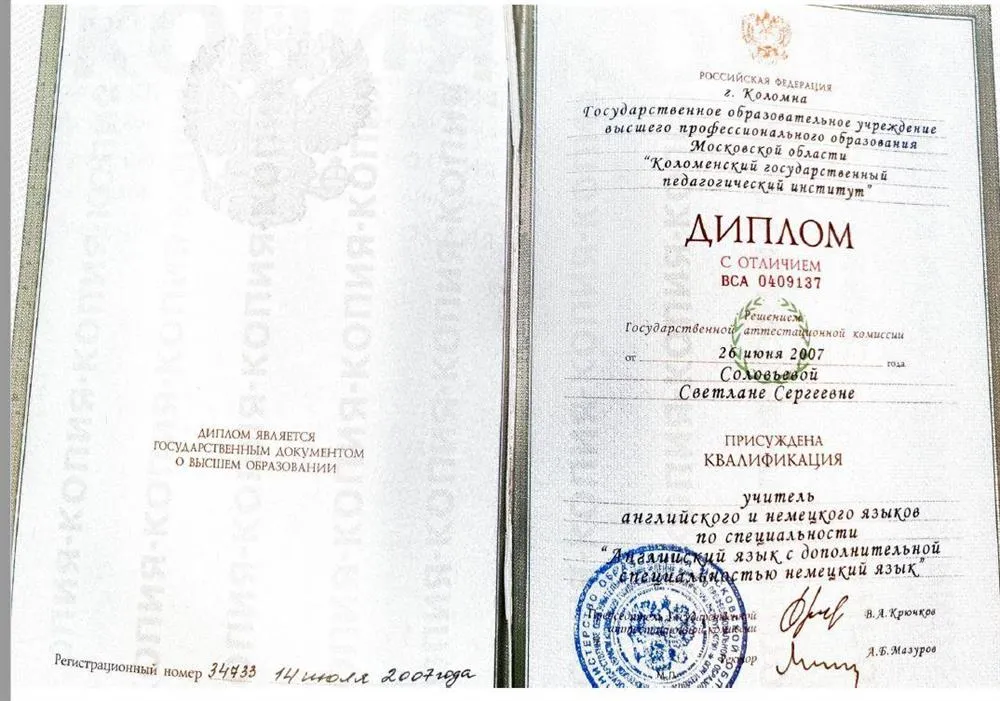 ДИПЛОМ ЯВЛЯЕТСЯ
ГОСУДАРСТВЕННЫМ ДОКУМЕНТОМ
О ВЫСШЕМ ОБРАЗОВАНИИ
Регистрационный номер 34733 14 июля 2007года
РОССИЙСКАЯ ФЕДЕРАЦИЯ
г. Коломна
Государственное образовательное учреждение
высшего профессионального образования
Московской области
"Коломенский государственный
педагогический институт"
ДИПЛОМ
С ОТЛИЧИЕМ
ВСА 0409137
Решением
Государственной аттестационной комиссии
от 26 июня 2007 года
Соловьевой
Светлане Сергеевне
ПРИСУЖДЕНА
КВАЛИФИКАЦИЯ
учитель
английского и немецкого языков
по специальности
"Английский язык с дополнительной
специальностью немецкий язык"
Председатель Государственной
аттестационной комиссии
В.А.Крючков
Ректор
А.Б.Мазуров